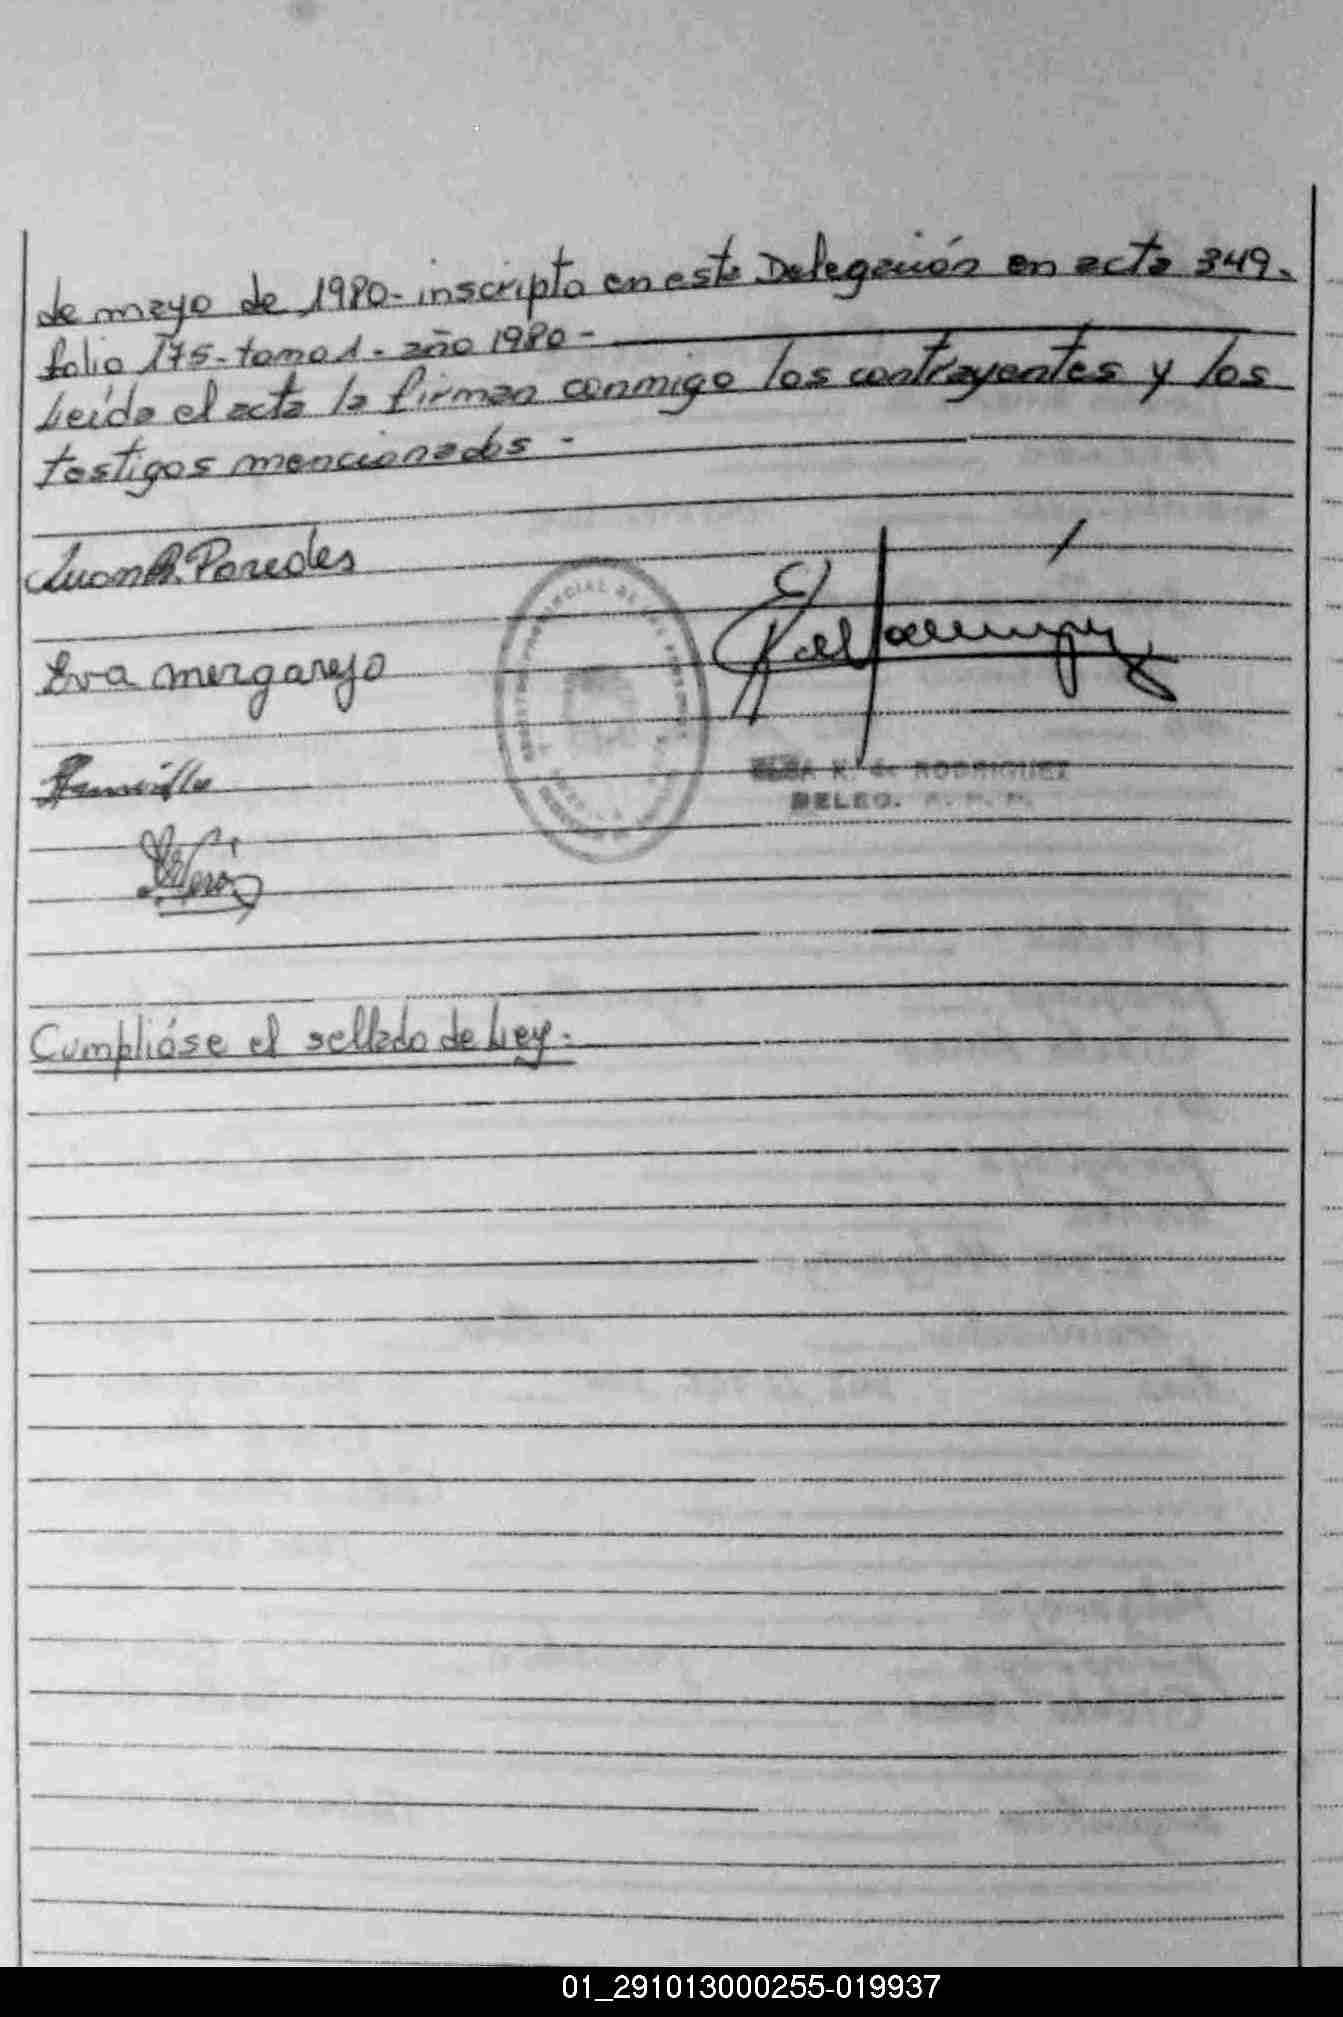 de mayo de 1980- inscripta en esta Delegación en acta 349.
folio 175- tomo 1- año 1980-
Leída el acta la firman conmigo los contrayentes y los
testigos mencionados -
Juan R. Paredes
Eva mergarejo
ELSA K. de RODRIGUEZ
DELEG. R. P. P.
Cumplióse el sellado de Ley.
01_291013000255-019937